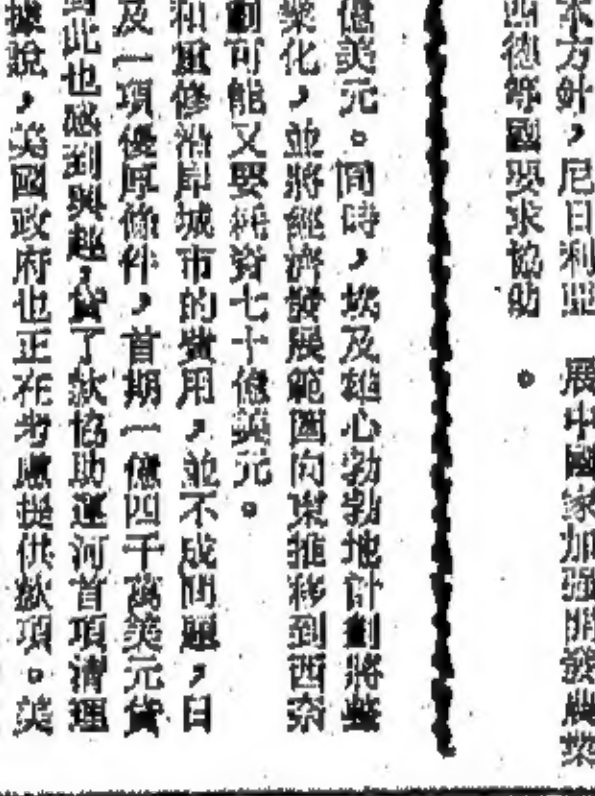 本方針，尼日利亞　展中國家加强開發農業
西德等國要求協助　。
億美元。同時，埃及雄心勃勃地計劃將整
業化，並將經濟發展範圍向東推移到西奈
劃可能又要耗資七十億美元。
和重修沿岸城市的費用，並不成問題，日
及一項優厚條件，首期一億四千萬美元貸
此也感到興趣，貸了款協助運河首項清理
據說，美國政府也正在考慮提供款項。美